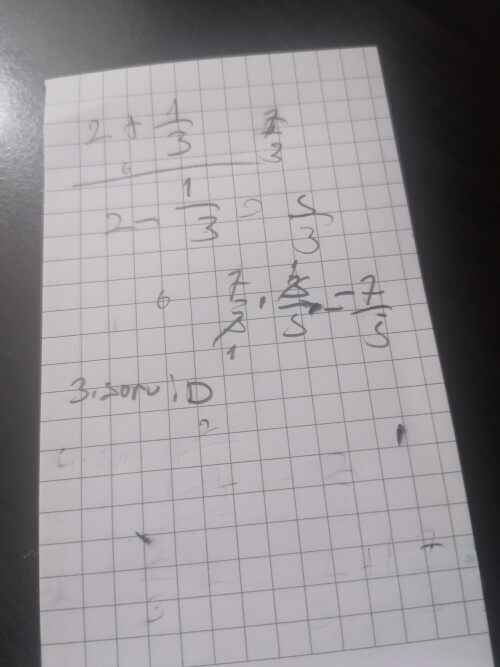 2 + 1/3 7/3
2 - 1/3 = 5/3
7/3 · 3/5 = 7/5
3. soru: D